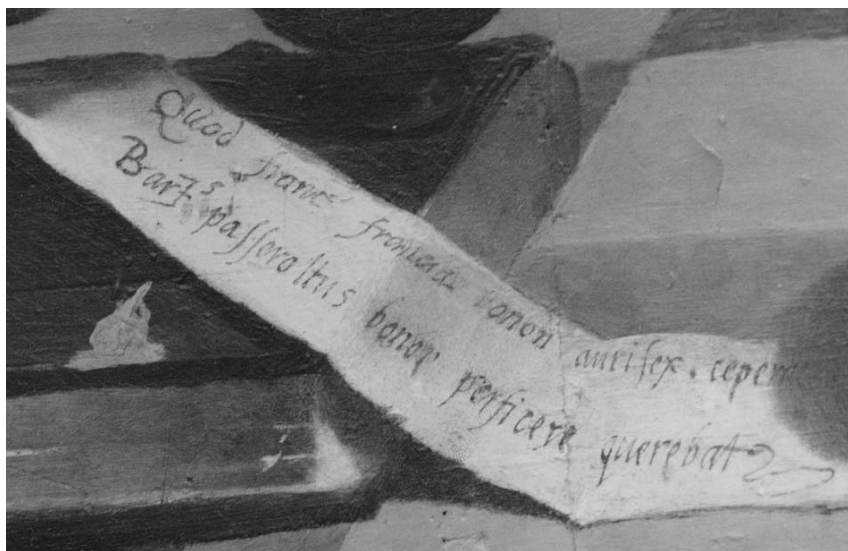 Quod franc⁹ francia bonon aurifex . ceper
Bart⁹s passerottus bonon perficere querebat